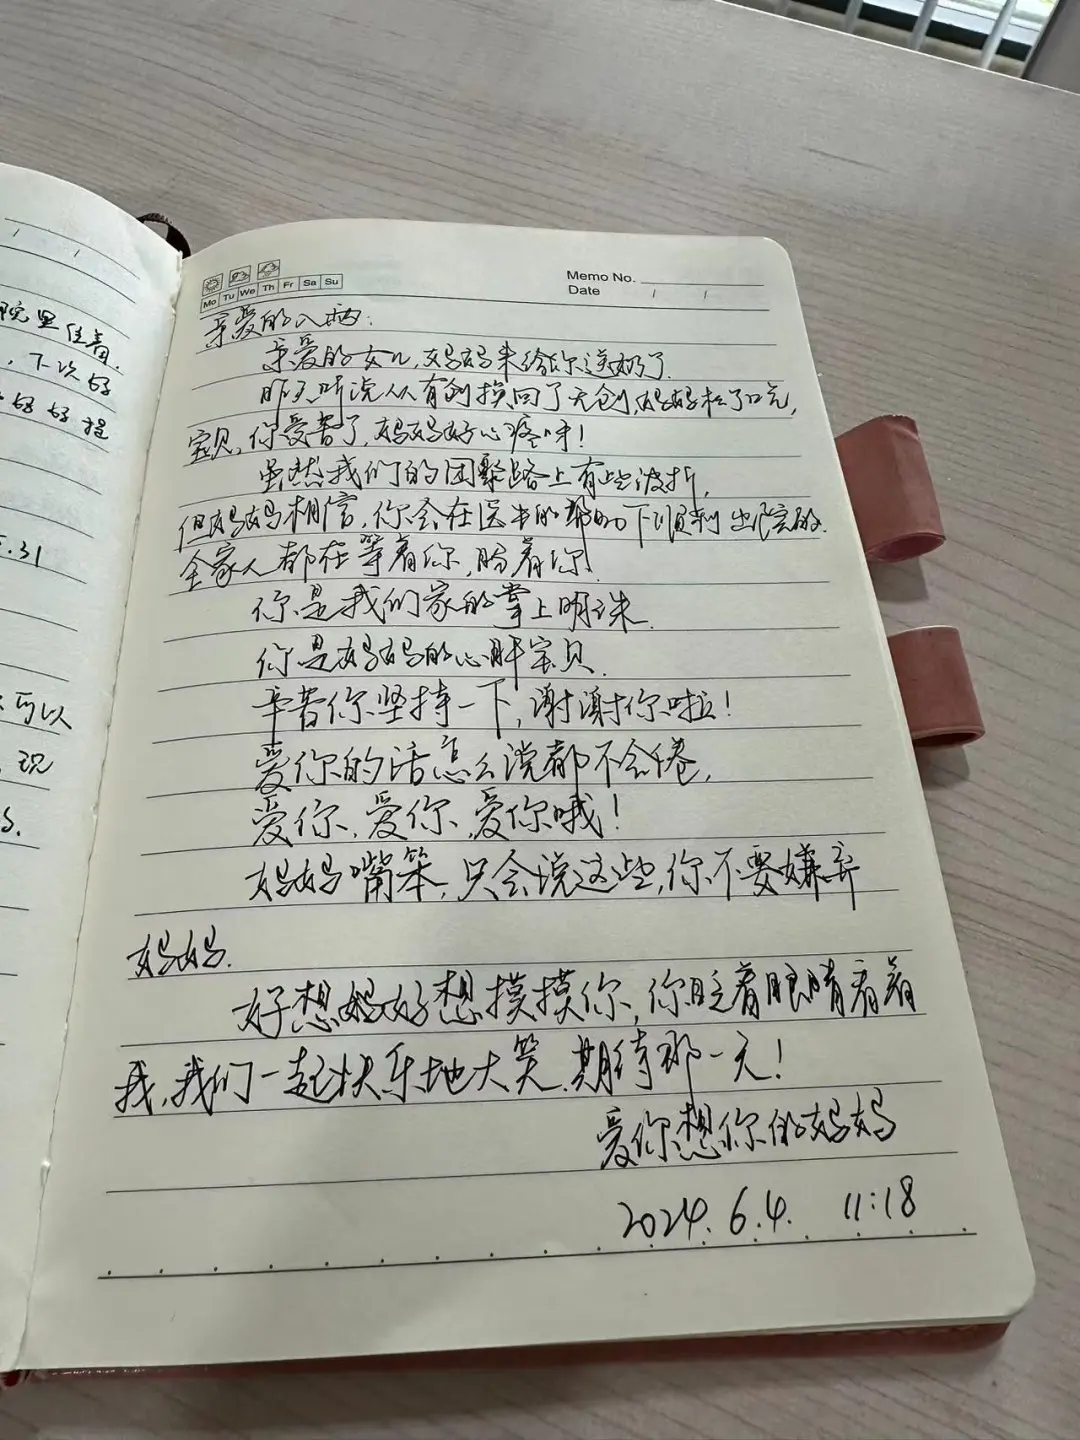 院里住着.
，下次好
好好握
5.31
可以
，现
Mo Tu We Th Fr Sa Su
Memo No.
Date / /
亲爱的
亲爱的女儿,妈妈来给你送奶了.
昨天听说从有创换回了无创,妈妈松了口气,
宝贝,你受苦了,妈妈好心疼呀!
虽然我们的团聚路上有些波折,
但妈妈相信,你会在医生的帮助下顺利出院的.
全家人都在等着你,盼着你!
你是我们家的掌上明珠.
你是妈妈的心肝宝贝.
辛苦你坚持一下,谢谢你啦!
爱你的话怎么说都不会倦,
爱你,爱你,爱你哦!
妈妈嘴笨,只会说这些,你不要嫌弃
妈妈.
好想好想摸摸你,你眨着眼睛看着
我,我们一起快乐地大笑.期待那一天!
爱你想你的妈妈
2024.6.4. 11:18